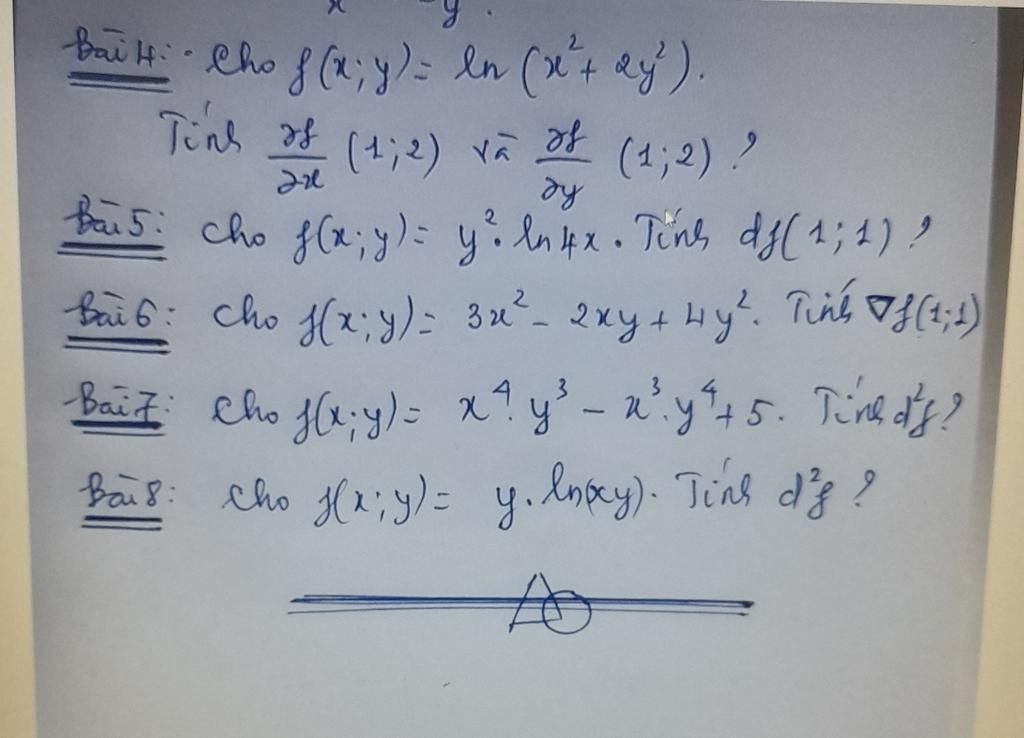 x -y.
Bài 4: Cho f(x;y) = ln (x² + 2y²).
Tính ∂f/∂x (1;2) và ∂f/∂y (1;2) ?
Bài 5: Cho f(x;y) = y². ln 4x. Tính df(1;1) ?
Bài 6: Cho f(x;y) = 3x² - 2xy + 4y². Tính ∇f(1;1)
Bài 7: Cho f(x;y) = x⁴. y³ - x³. y⁴ + 5. Tính d²f ?
Bài 8: Cho f(x;y) = y. ln(xy). Tính d²f ?